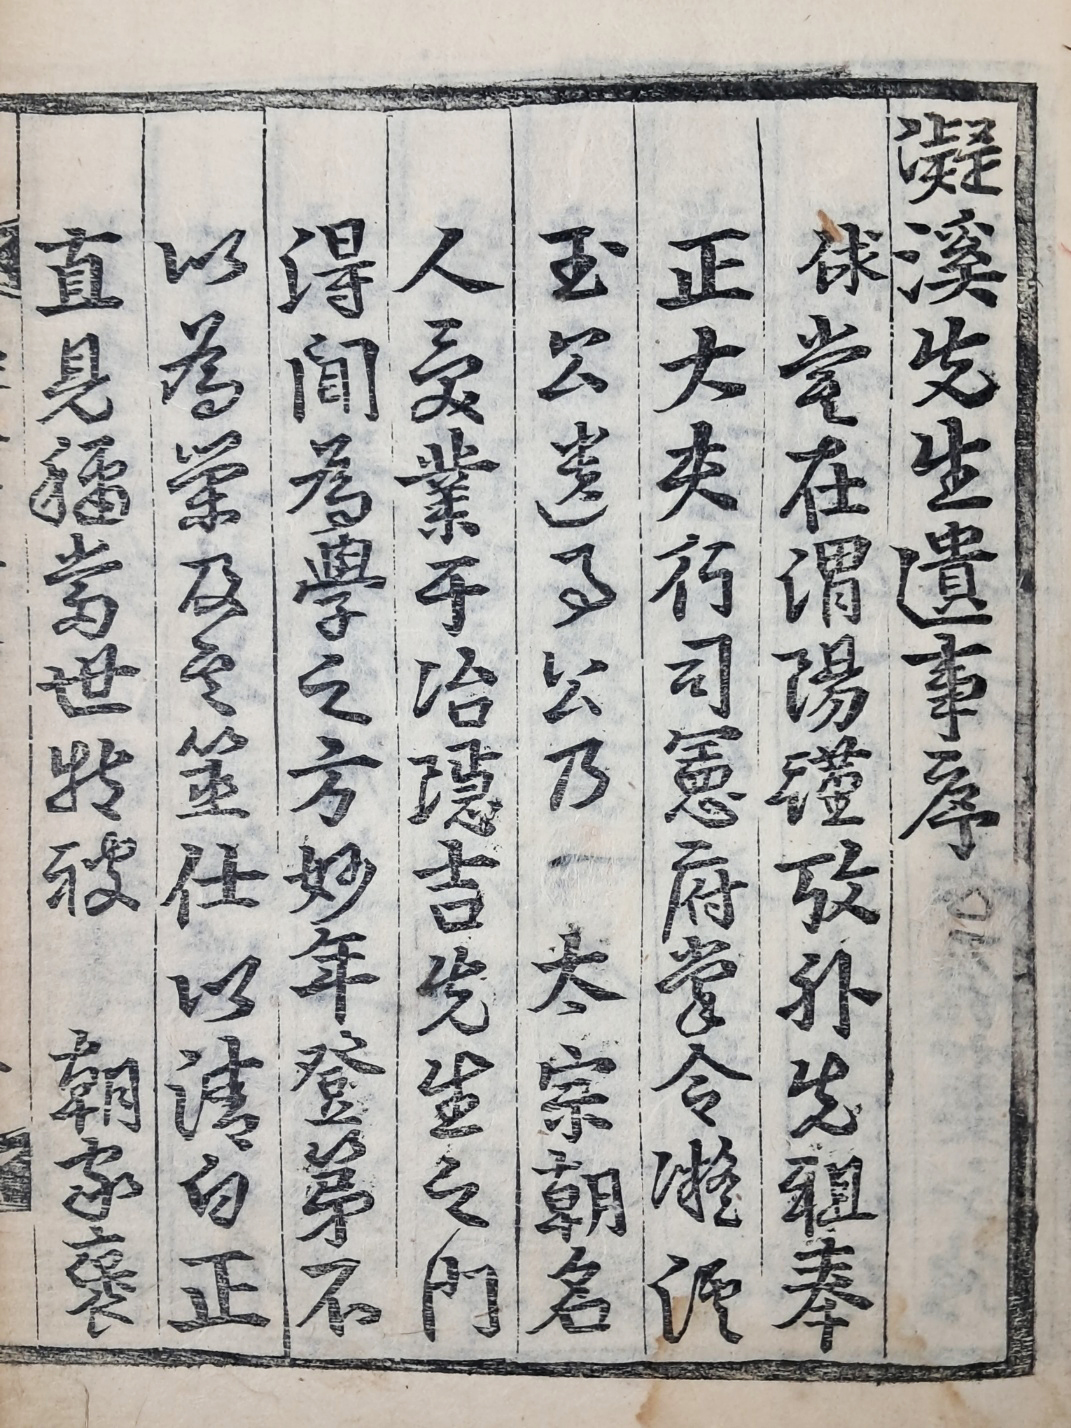 凝溪先生遺事序
俅嘗在渭陽謹攷外先祖奉
正大夫行司憲府掌令凝溪
玉公遺事公乃 太宗朝名
人受業于冶隱吉先生之門
得聞為學之方妙年登第不
以為榮及其筮仕以清白正
直見稱當世特被 朝家褒